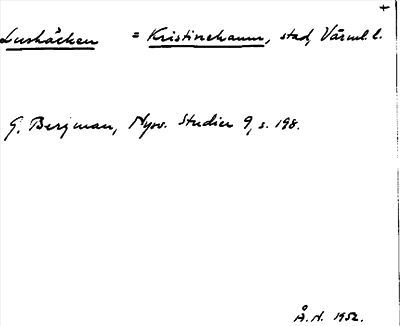 +
Lusbäcken = Kristinehamn, stad, Värml. l.
G. Bergman, Nysv. Studier 9, s. 198.
Å. N. 1952.